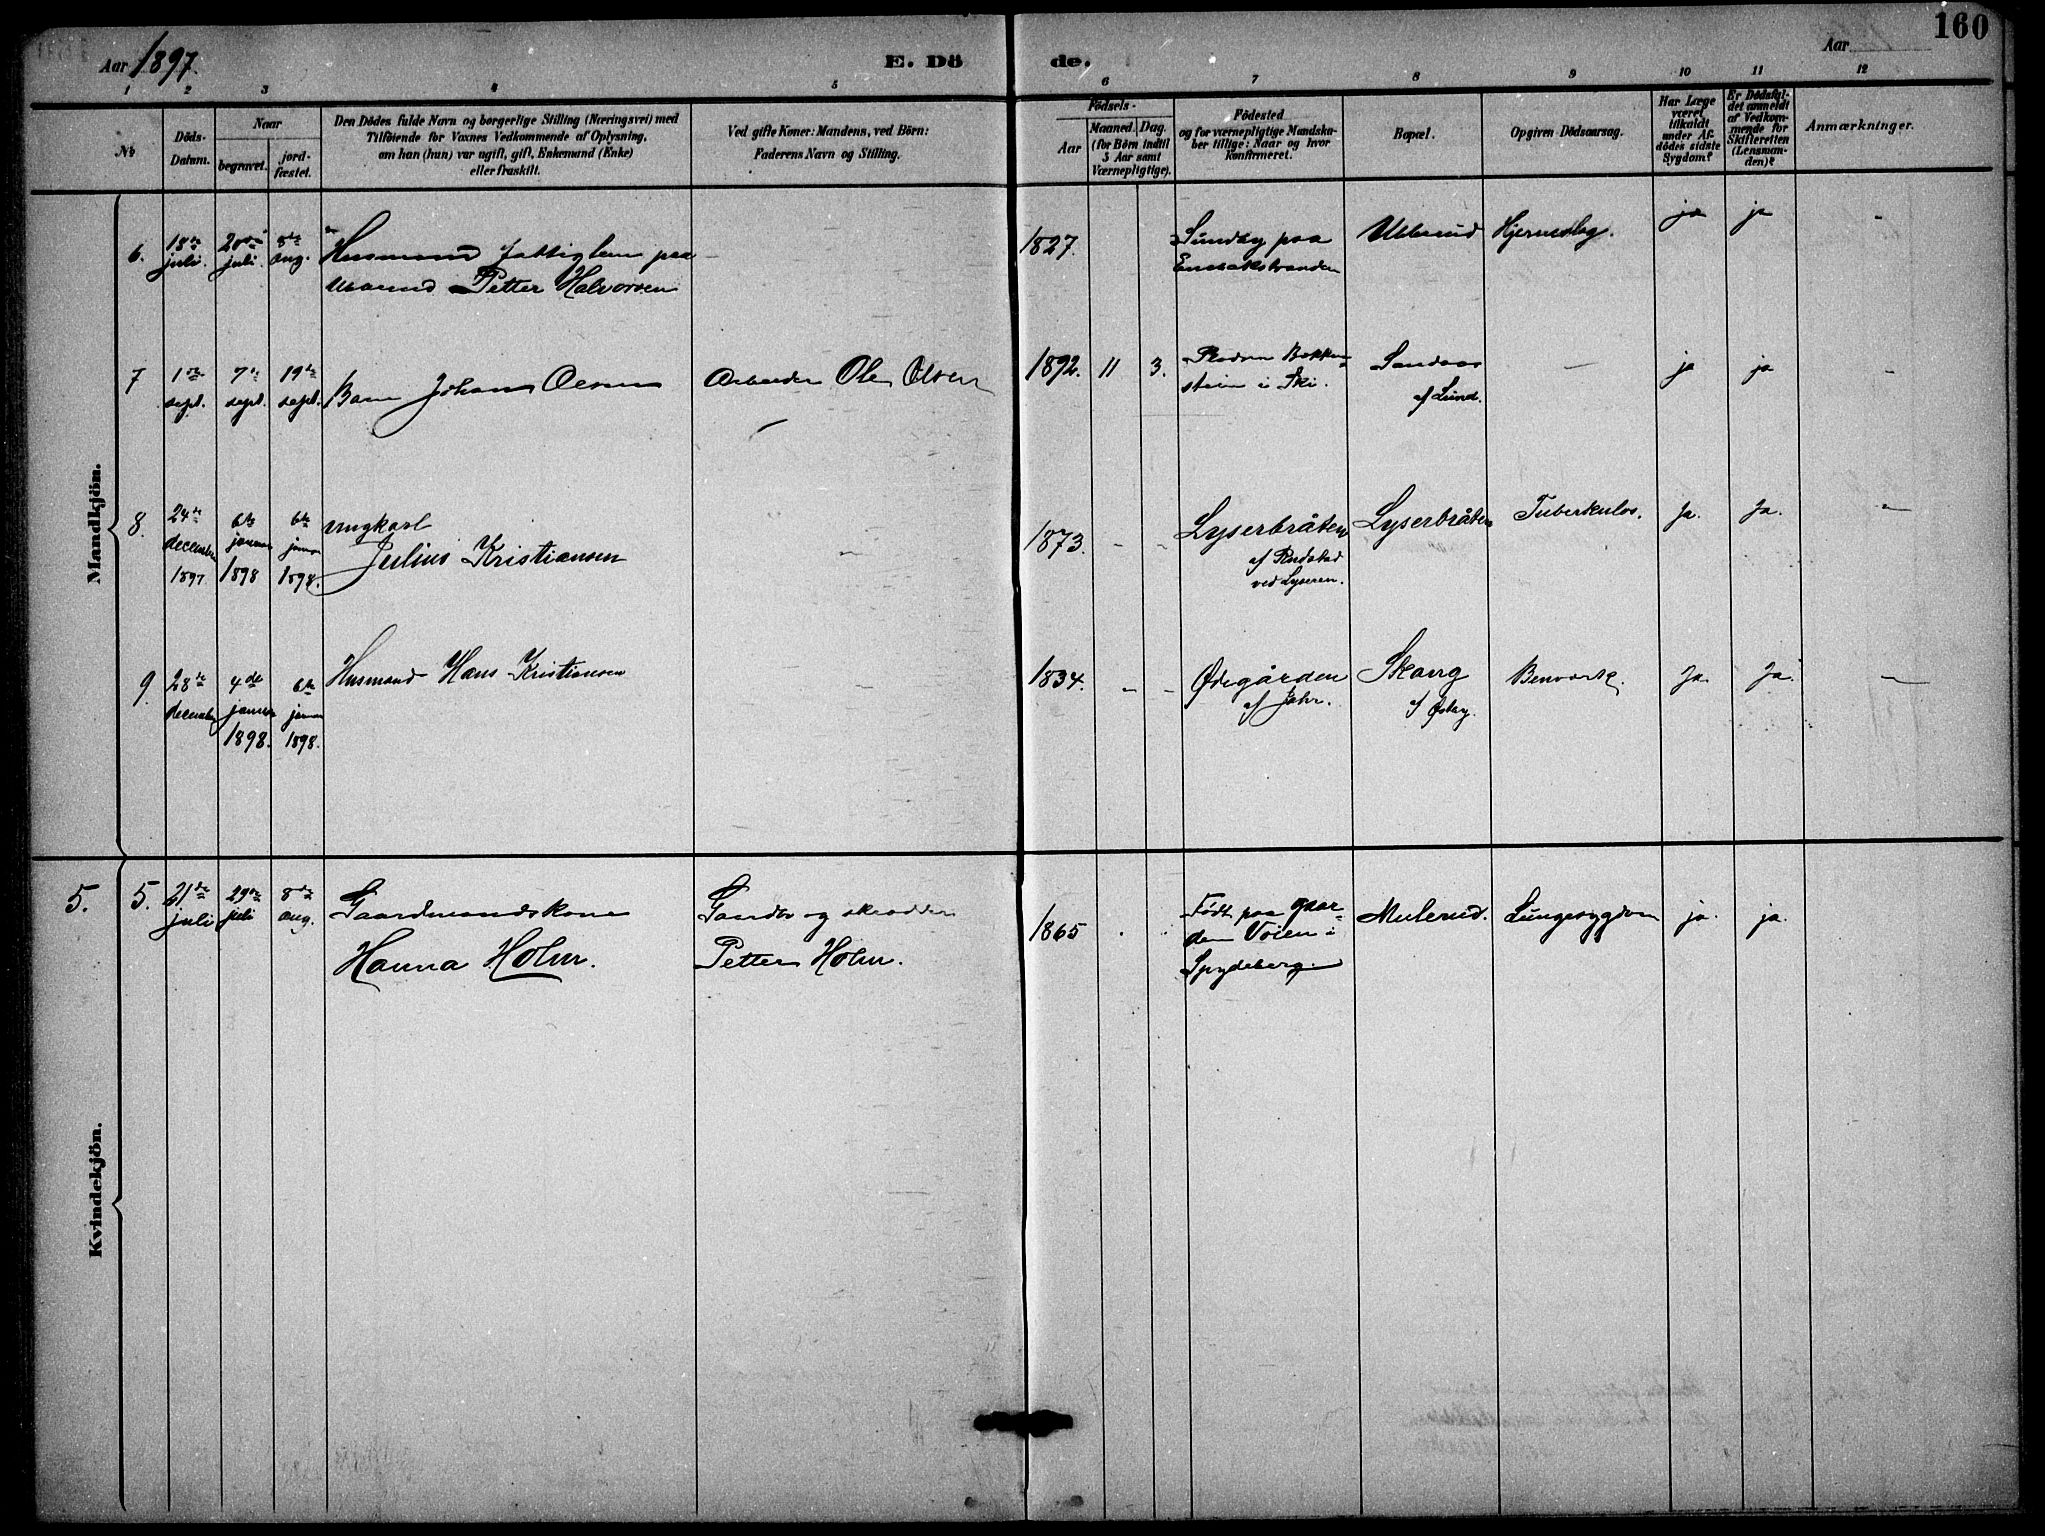 Aar 1897.
E. Dö
de.
Aar
160
1 2 3 4 5 6 7 8 9 10 11 12
No
Döds-
Datum.
Naar
begravet.
jord-
fæstet.
Den Dödes fulde Navn og borgerlige Stilling (Næringsvei) med
Tilföiende for Voxnes Vedkommende af Oplysning,
om han (hun) var ugift, gift, Enkemand (Enke)
eller fraskilt.
Ved gifte Koner: Mandens, ved Börn:
Faderens Navn og Stilling.
Födsels-
Aar
Maaned. Dag.
(for Börn indtil
3 Aar samt
Værnepligtige).
Födested
og for værnepligtige Mandska-
ber tillige: Naar og hvor
konfirmeret.
Bopæl.
Opgiven Dödsaarsag.
Har Læge
været
tilkaldt
under Af-
dödes sidste
Sygdom?
Er Dödsfal-
det anmeldt
af Vedkom-
mende for
Skifteretten
(Lensman-
den)?
Anmærkninger.
Mandkjön.
6.
18de
juli.
20de
juli.
8de
aug.
Husmand Fattiglem paa
Petter Halvorsen
1827.
Sundby paa
Enebakstranden
Ulterud
Hjerneslag.
ja
ja
7
1ste
sept.
7de
sept.
19de
sept.
Barn Johan Olsen
Arbeider Ole Olsen
1892. 11 3.
i Ski.
Sandaas
af Lund.
—
ja
ja
8.
24de
december
1897
6te
januar
1898
6te
januar
1898.
Ungkarl
Julius Kristiansen
1873.
Lyserbråten
af Rudstad
ved Lyseren.
Lyserbråten
Tuberkulos.
Ja.
Ja.
9.
28de
december
4de
januar
1898.
6te
januar
1898.
Husmand Hans Kristiansen
1834.
Ødegården
af Jahr.
Skaug
af Østby.
Benværk.
Ja.
Ja.
Kvindekjön.
5.
5.
21de
juli
29de
juli
8de
aug.
Gaardmandskone
Hanna Holm.
Gaardbr. og skrædder
Petter Holm.
1865
Født paa gaar-
den Voien i
Spydeberg.
Mulerud.
Lungesygdom
ja.
ja.